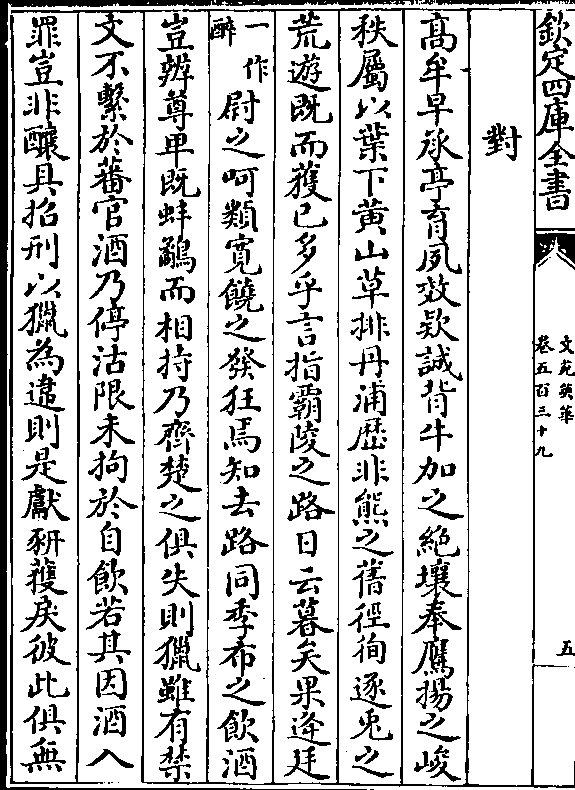 欽定四庫全書
文苑英華
卷五百三十九
五
對
高牟早承亭育夙效欵誠背牛加之絶壤奉鷹揚之峻
秩屬以葉下黄山草排丹浦歴非熊之舊徑徇逐兎之
荒遊既而獲已多乎言指霸陵之路日云暮矣果逄廷
一作
醉
尉之呵類寛饒之發狂焉知去路同季布之飲酒
豈辨尊卑既蚌鷸而相持乃齊楚之俱失則獵雖有禁
文不繫於蕃官酒乃停沽限未拘於自飲若其因酒入
罪豈非釀具招刑以獵為違則是獻豜䕶戾彼此俱無